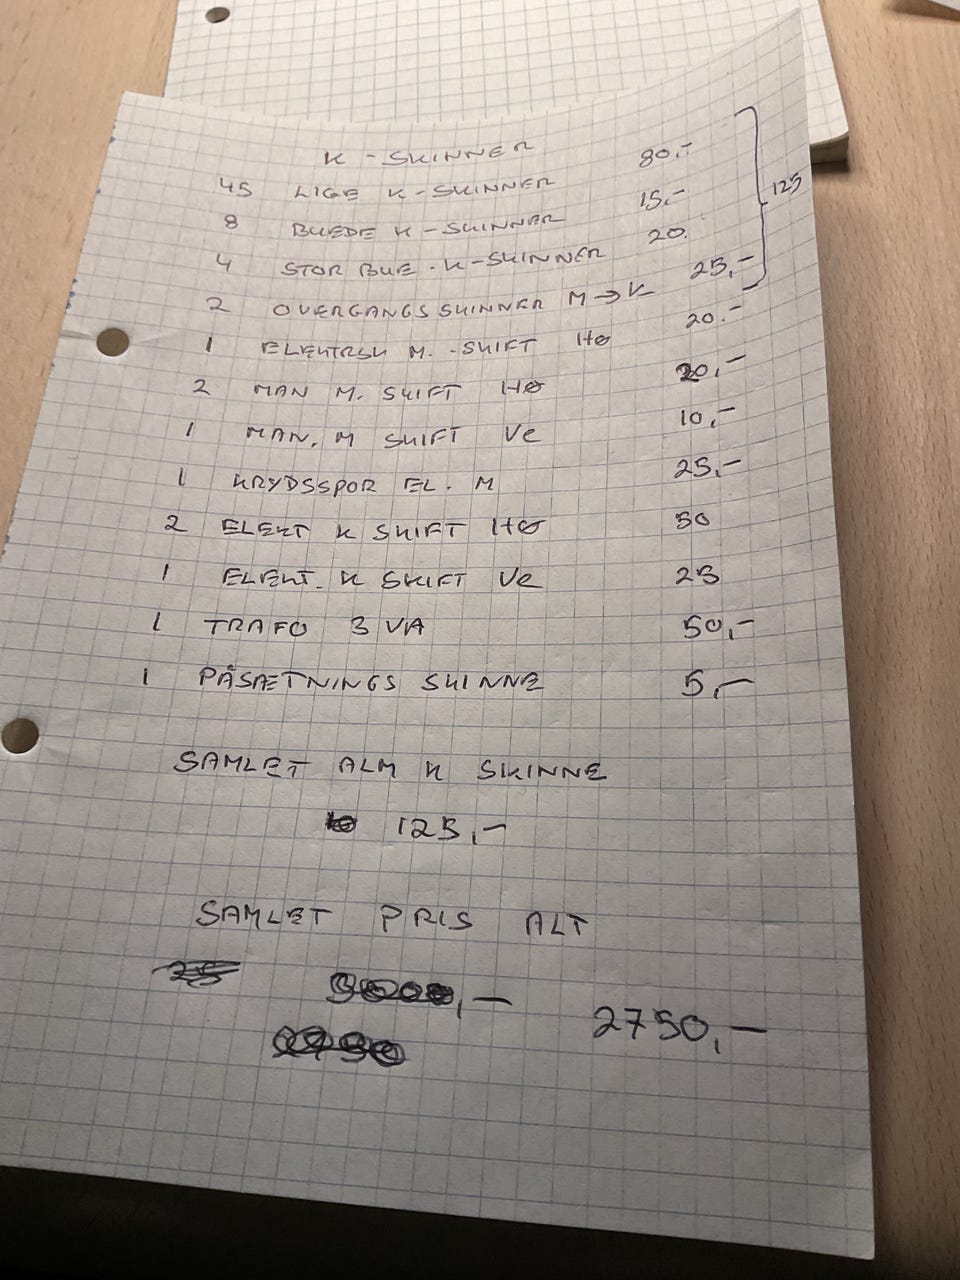 K-SKINNER
45 LIGE K-SKINNER 80,-
8 BUEDE K-SKINNER 15,-
4 STOR BUE.K-SKINNER 20.
2 OVERGANGSSKINNER M→K 25,-
125
1 ELEKTRSK M.-SKIFT HØ 20.-
2 MAN M. SKIFT HØ 20,-
1 MAN. M SKIFT VE 10,-
1 KRYDSSPOR EL. M 25,-
2 ELEKT K SKIFT HØ 50
1 ELEKT. K SKIFT VE 25
1 TRAFO 3 VA 50,-
1 PÅSÆTNINGS SKINNE 5,-
SAMLET ALM K SKINNE
125,-
SAMLET PRIS ALT
2750,-